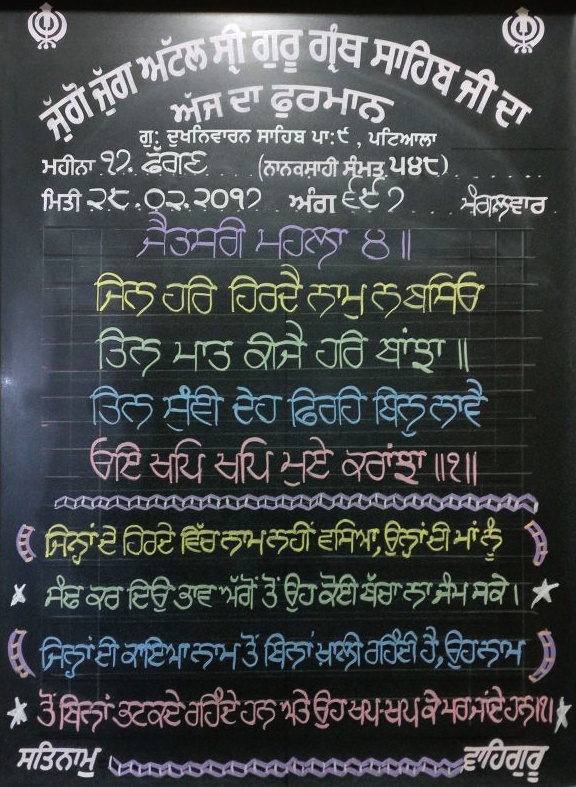 ਜੁੱਗੋ ਜੁੱਗ ਅਟੱਲ ਸ੍ਰੀ ਗੁਰੂ ਗ੍ਰੰਥ ਸਾਹਿਬ ਜੀ ਦਾ
ਅੱਜ ਦਾ ਫੁਰਮਾਨ
ਗੁ: ਦੁਖਨਿਵਾਰਨ ਸਾਹਿਬ ਪਾ:੯ , ਪਟਿਆਲਾ
ਮਹੀਨਾ ੧੭ ਫੱਗਣ (ਨਾਨਕਸਾਹੀ ਸੰਮਤ ੫੪੮)
ਮਿਤੀ ੨੮.੦੨.੨੦੧੭ ਅੰਗ ੬੯੭ ਮੰਗਲਵਾਰ
ਜੈਤਸਰੀ ਮਹਲਾ ੪ ॥
ਜਿਨ ਹਰਿ ਹਿਰਦੈ ਨਾਮੁ ਨ ਬਸਿਓ
ਤਿਨ ਮਾਤ ਕੀਜੈ ਹਰਿ ਬਾਂਝਾ ॥
ਤਿਨ ਸੁੰਞੀ ਦੇਹ ਫਿਰਹਿ ਬਿਨੁ ਨਾਵੈ
ਓਇ ਖਪਿ ਖਪਿ ਮੁਏ ਕਰਾਂਝਾ ॥੧॥
ਜਿਨ੍ਹਾਂ ਦੇ ਹਿਰਦੇ ਵਿੱਚ ਨਾਮ ਨਹੀਂ ਵਸਿਆ, ਉਨ੍ਹਾਂ ਦੀ ਮਾਂ ਨੂੰ
ਸੰਢ ਕਰ ਦਿਉ ਭਾਵ ਅੱਗੋਂ ਤੋਂ ਉਹ ਕੋਈ ਬੱਚਾ ਨਾ ਜੰਮ ਸਕੇ।
ਜਿਨ੍ਹਾਂ ਦੀ ਕਾਇਆ ਨਾਮ ਤੋਂ ਬਿਨਾਂ ਖ਼ਾਲੀ ਰਹਿੰਦੀ ਹੈ, ਉਹ ਨਾਮ
ਤੋਂ ਬਿਨਾਂ ਭਟਕਦੇ ਰਹਿੰਦੇ ਹਨ ਅਤੇ ਉਹ ਖਪ ਖਪ ਕੇ ਮਰ ਜਾਂਦੇ ਹਨ॥੧॥
ਸਤਿਨਾਮੁ ਵਾਹਿਗੁਰੂ